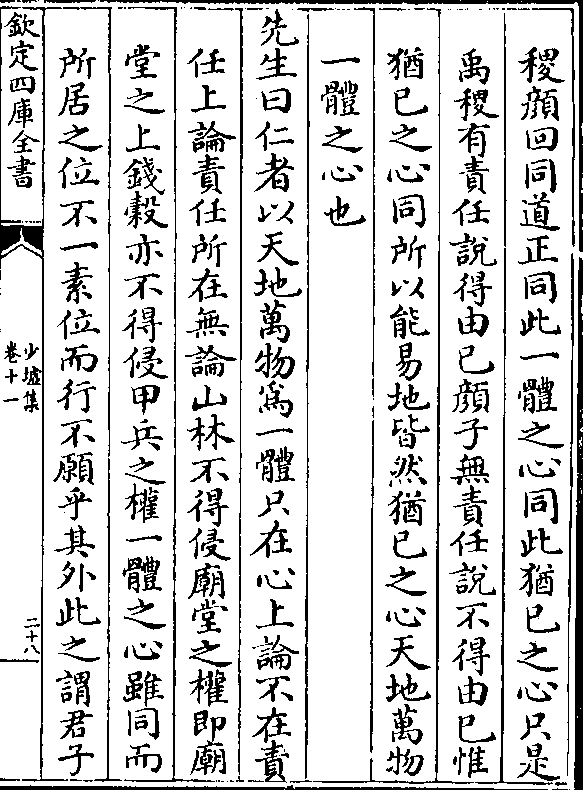 稷顔回同道正同此一體之心同此猶已之心只是
禹稷有責任說得由已顔子無責任說不得由已惟
猶已之心同所以能易地皆然猶已之心天地萬物
一體之心也
先生曰仁者以天地萬物爲一體只在心上論不在責
任上論責任所在無論山林不得侵廟堂之權即廟
堂之上錢穀亦不得侵甲兵之權一體之心雖同而
所居之位不一素位而行不願乎其外此之謂君子
欽定四庫全書
少墟集
卷十一
二十八